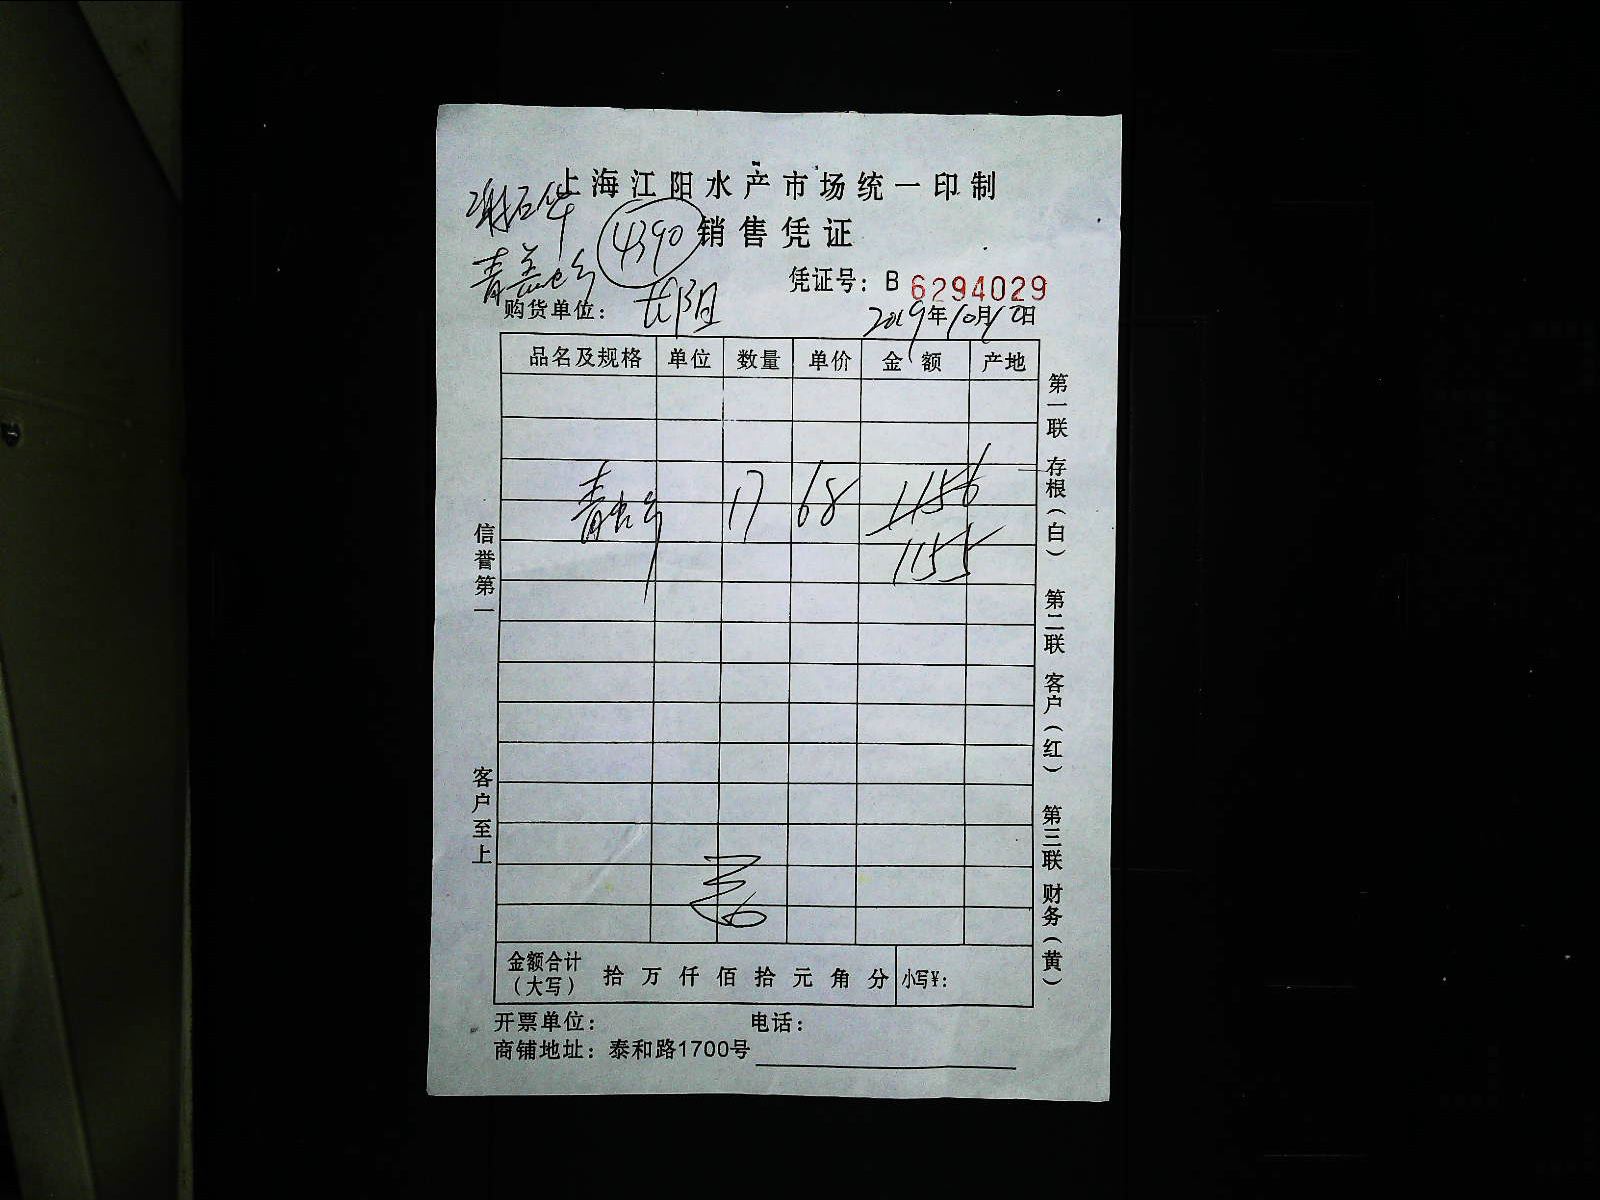 上海江阳水产市场统一印制
4390
销售凭证
凭证号：B 6294029
购货单位：
2019年10月12日
品名及规格 单位 数量 单价 金额 产地
17 68 1156
1155
信誉第一
客户至上
第一联 存根（白） 第二联 客户（红） 第三联 财务（黄）
金额合计（大写） 拾 万 仟 佰 拾 元 角 分 小写¥：
开票单位： 电话：
商铺地址：泰和路1700号